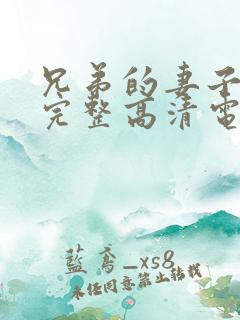 兄弟的妻子
完整高清电
藍鸢_xs8
未经同意禁止转载